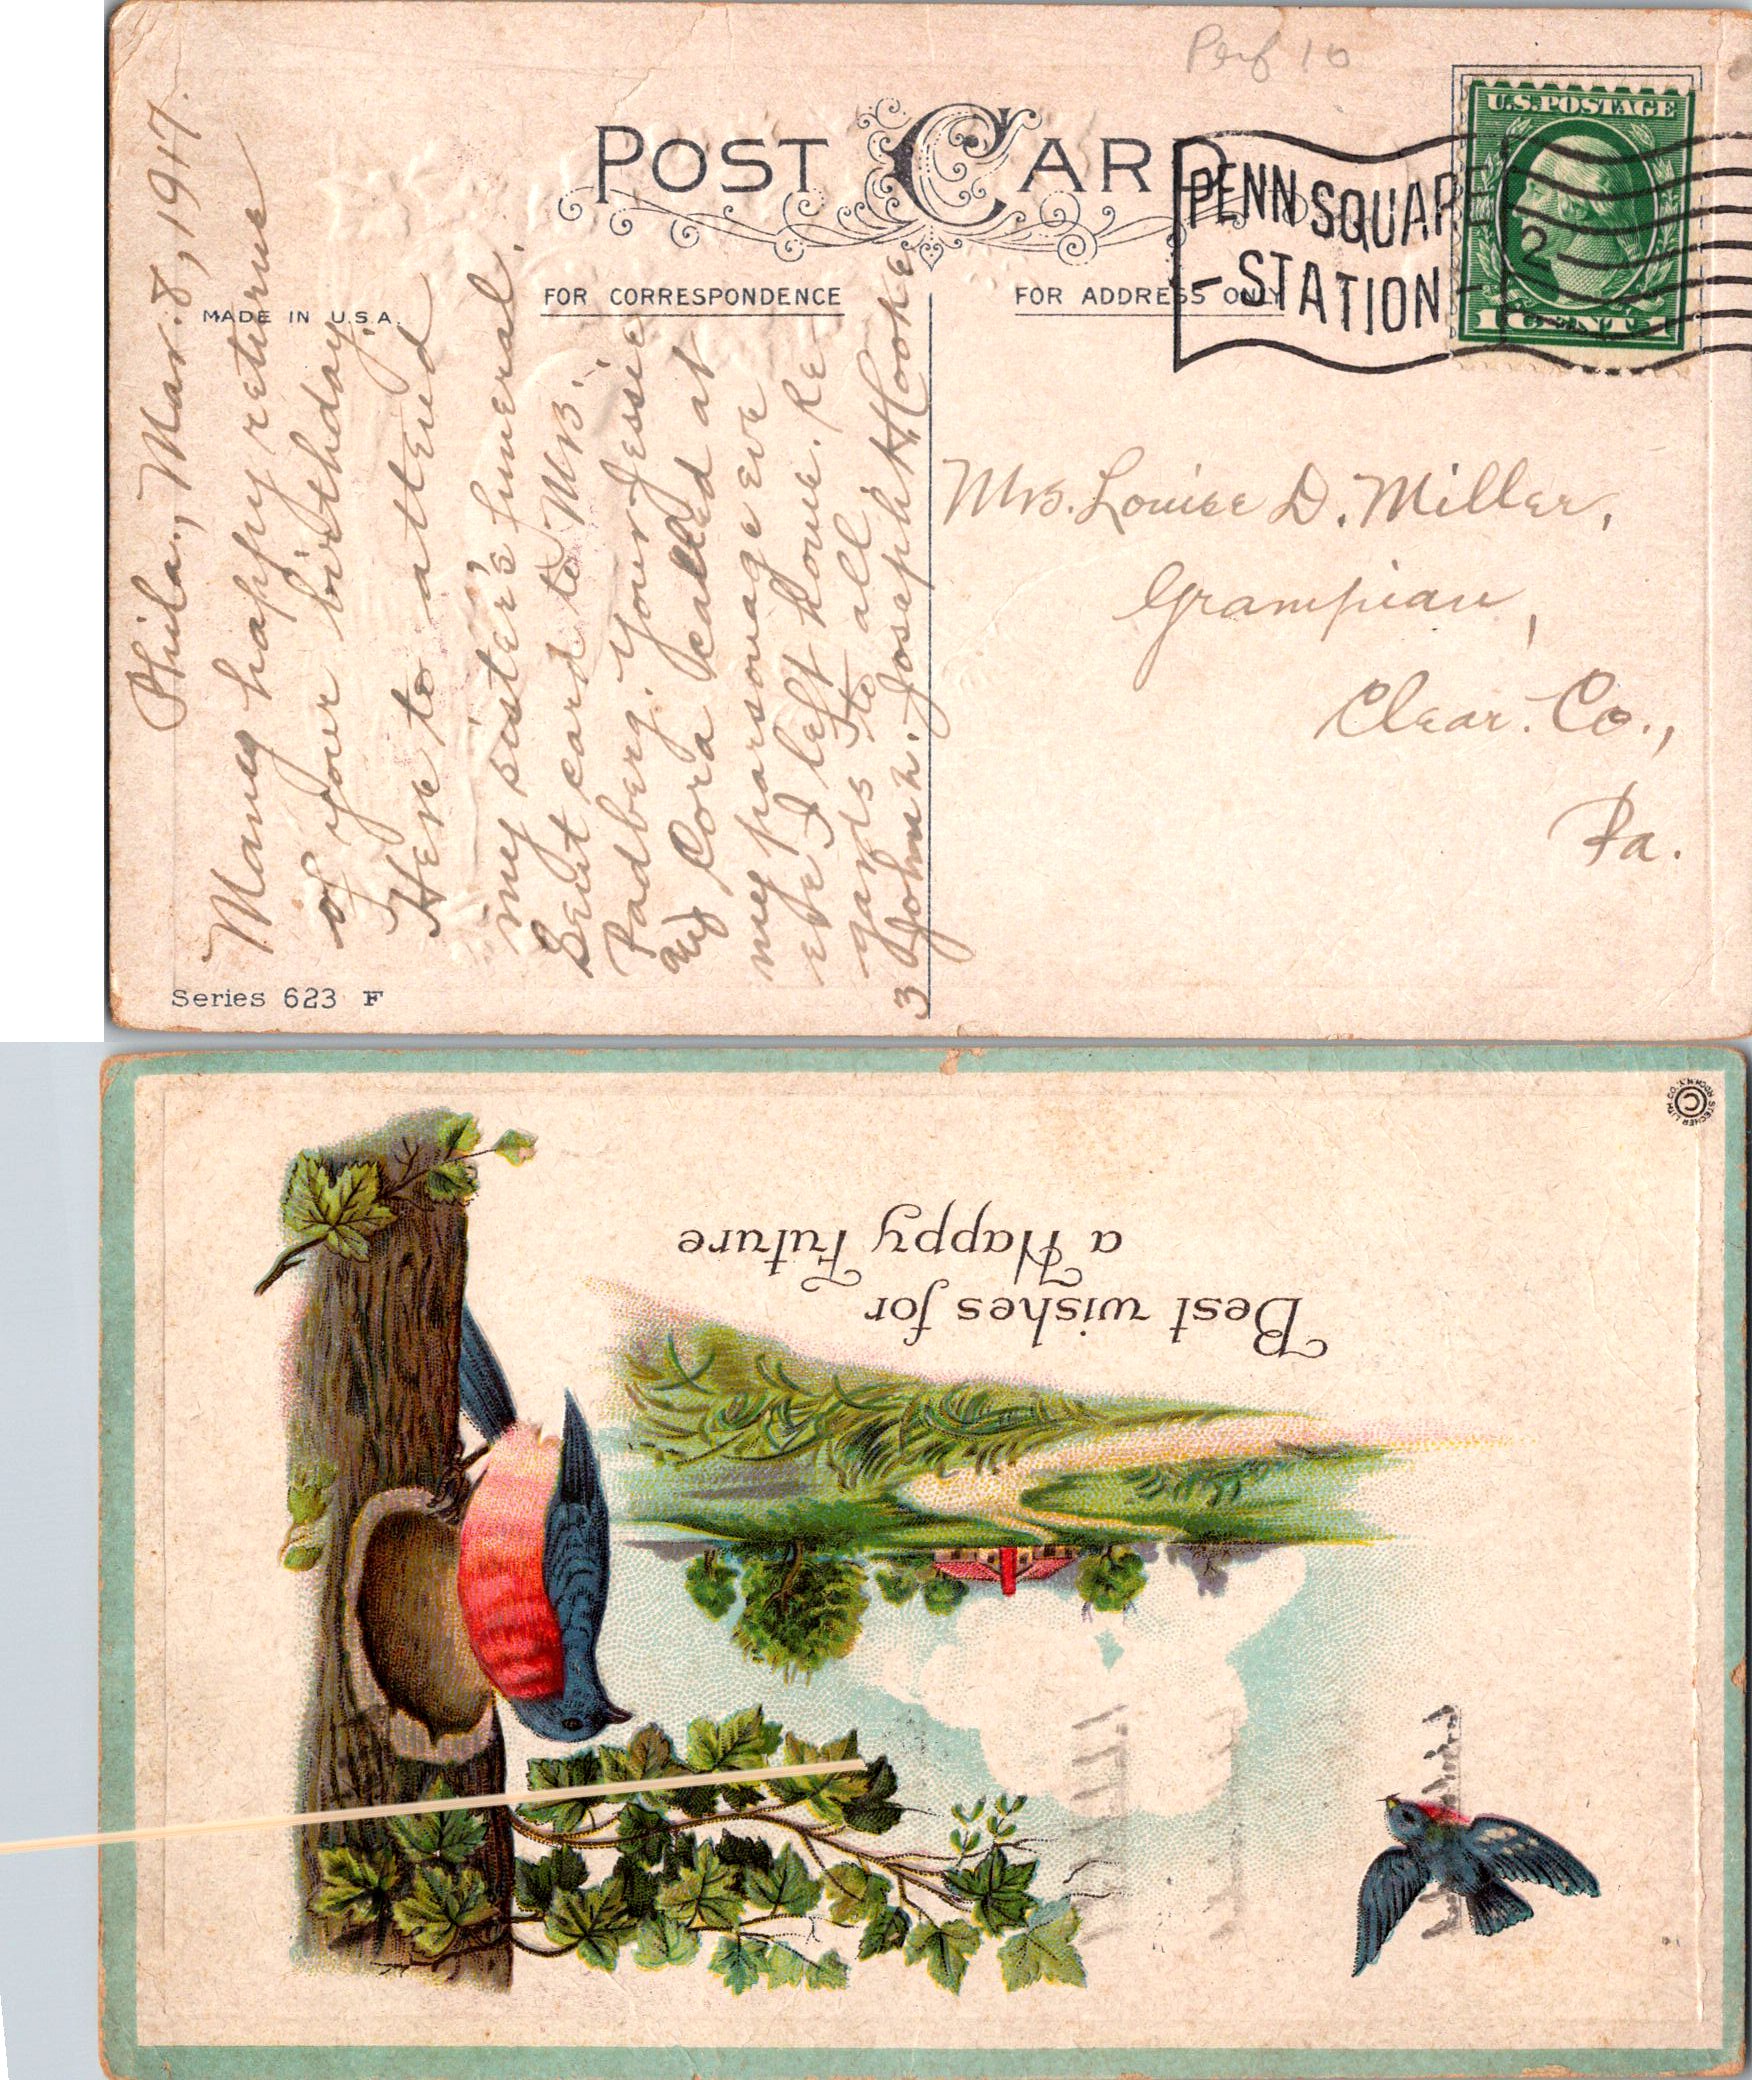 Perf 10
POST CARD
U.S. POSTAGE
1 CENT 1
2
PENN SQUARE
- STATION -
MADE IN U.S.A.
FOR CORRESPONDENCE
FOR ADDRESS ONLY
Phila., Mar. 8, 1917.
Many happy returns
of your birthday.
Here to attend
my sister's funeral.
Sent card to Mrs.
Padberg. Your Jessie
and Cora called at
my parsonage eve
ere I left home. Re
gards to all
3 John 2. Joseph H. Cooke
Mrs. Louise D. Miller,
Grampian,
Clear. Co.,
Pa.
Series 623 F
Best wishes for
a Happy Future
© STECHER LITH. CO. ROCH. N.Y.